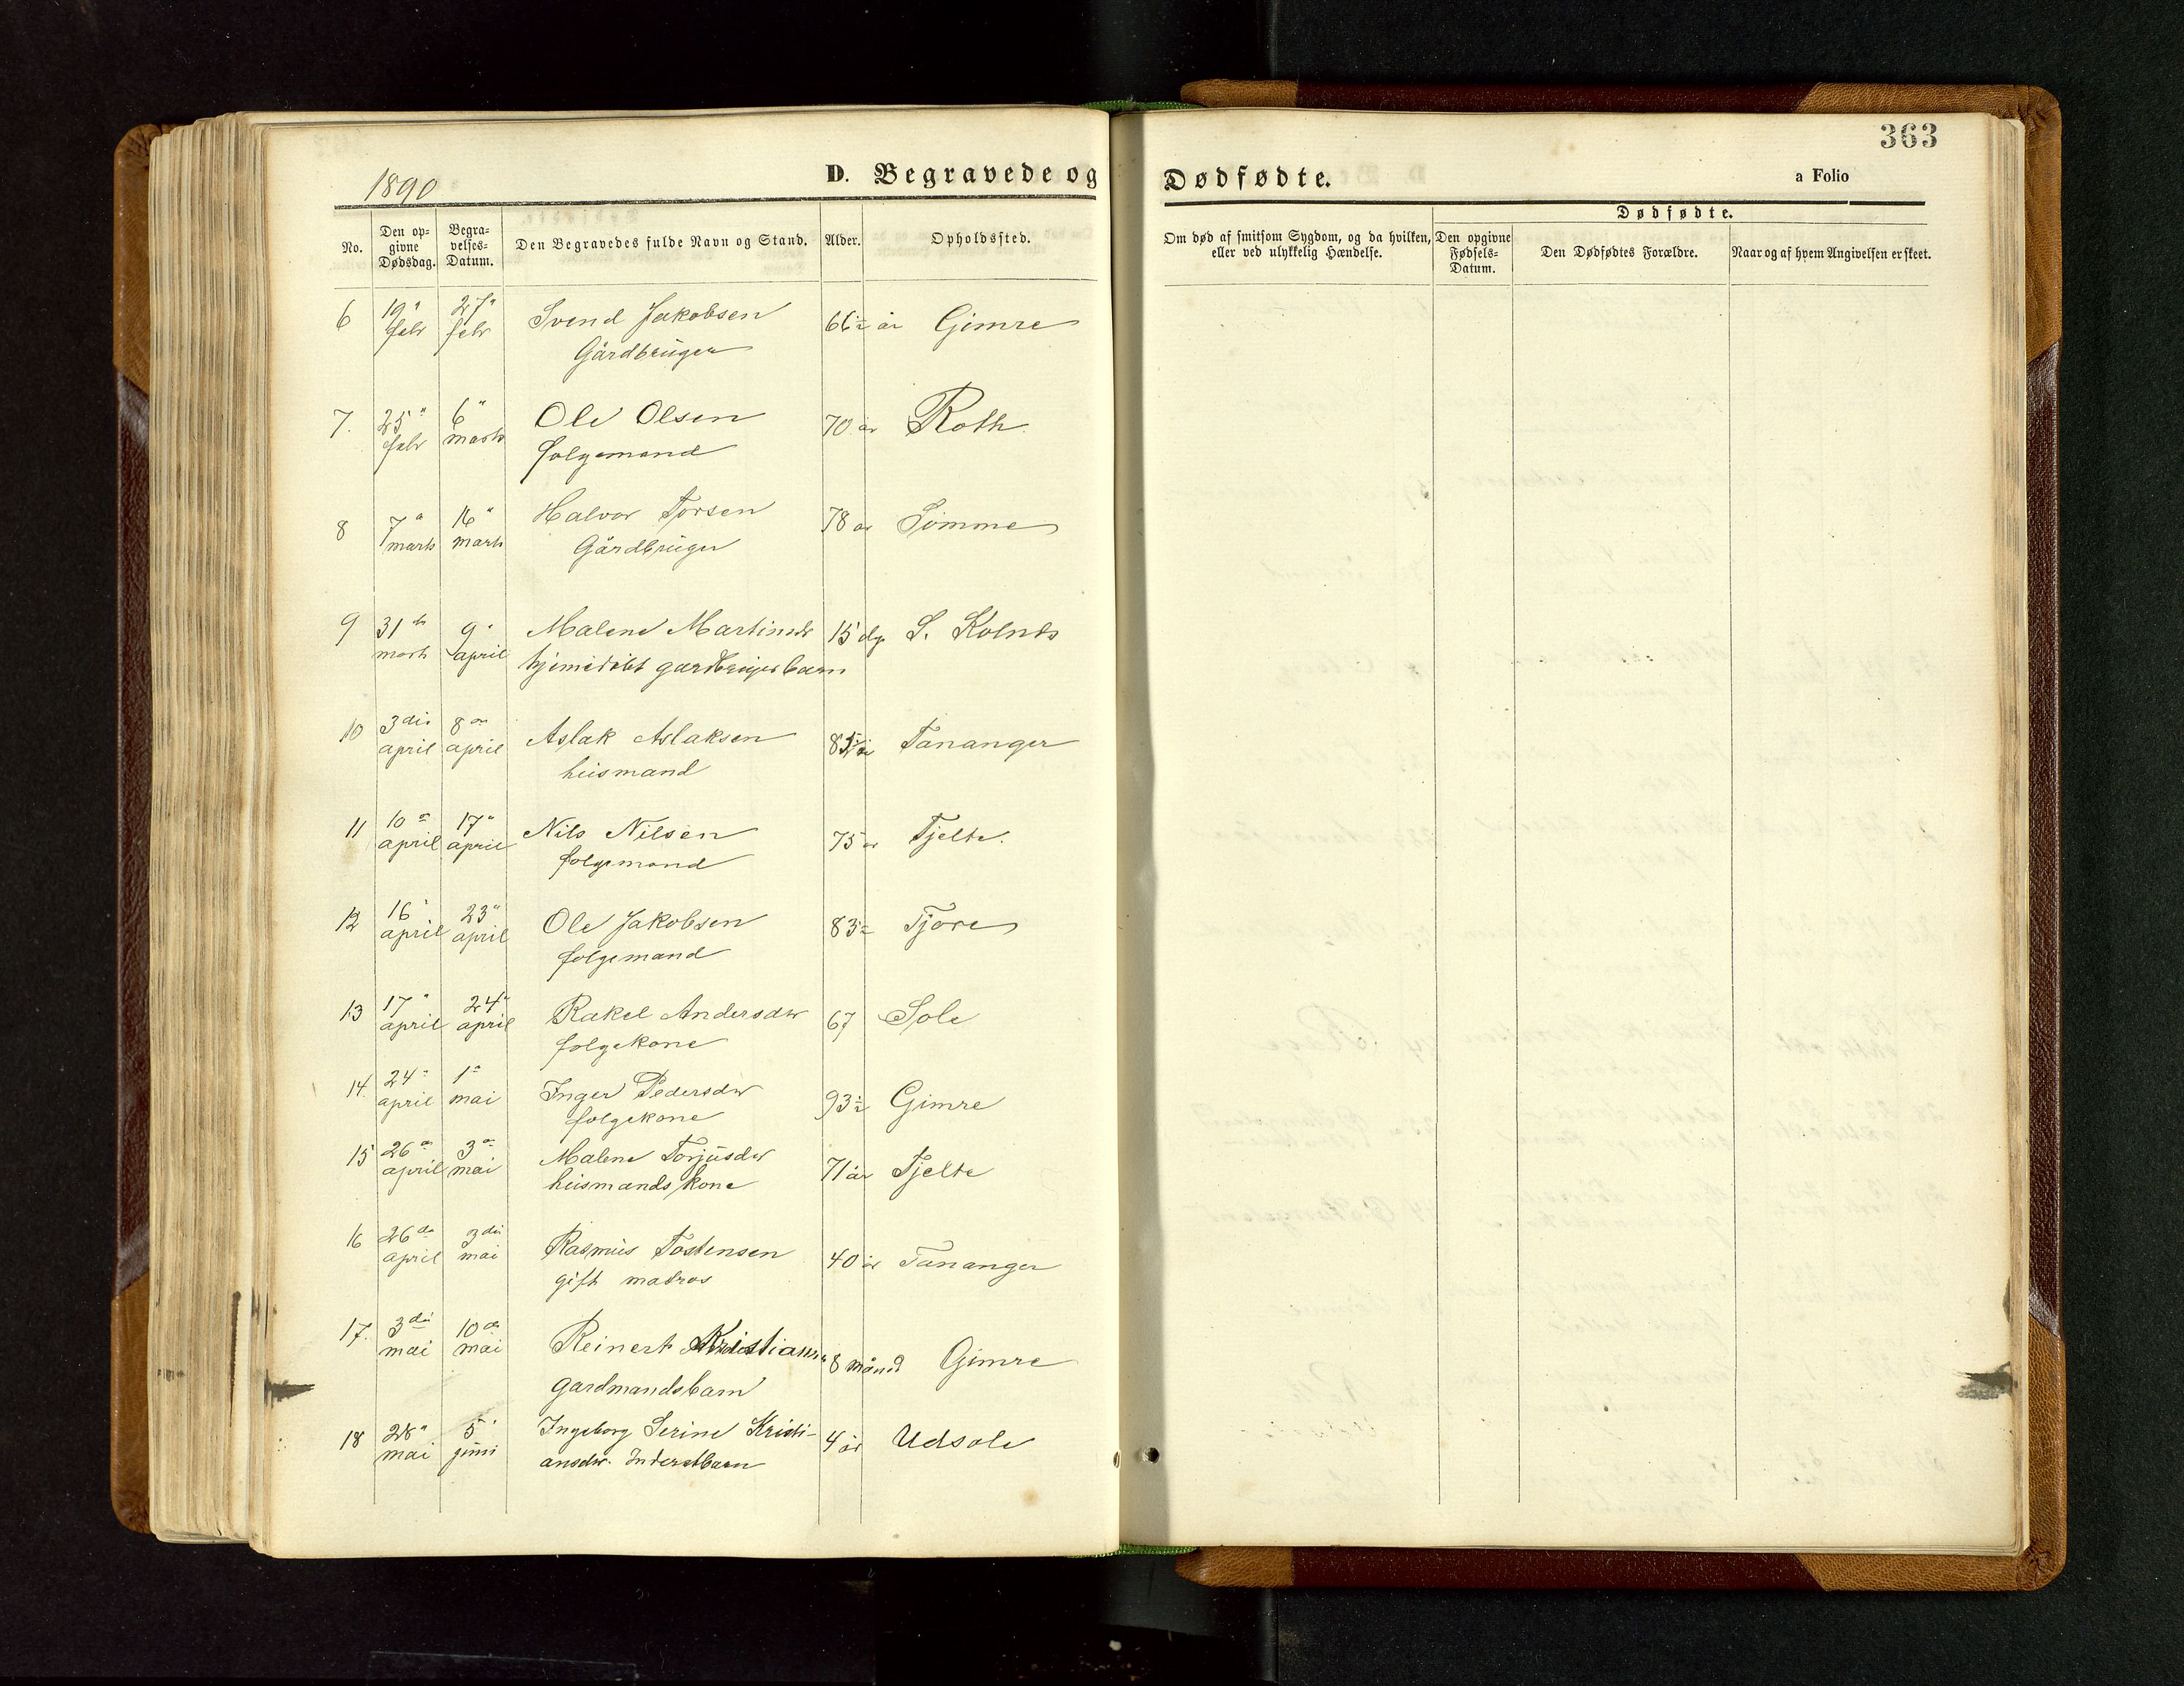 363
1890
D. Begravede og Dødfødte.
a Folio
No.
Den op-
givne
Dødsdag.
Begra-
velses-
Datum.
Den Begravedes fulde Navn og Stand.
Alder.
Opholdssted.
Om død af smitsom Sygdom, og da hvilken,
eller ved ulykkelig Hændelse.
Dødfødte.
Den opgivne
Fødsels-
Datum.
Den Dødfødtes Forældre.
Naar og af hvem Angivelsen er skeet.
6 19" febr 27" febr Svend Jakobsen 66 år Gimre
Gårdbruger
7. 25" febr 6" marts Ole Olsen 70 år Roth
folgemand
8 7" marts 16" marts Halvor Torsen 78 år Sømme
Gårdbruger
9 31te marts 9" april Malene Martinsdr 15 dg S. Kolnes
hjemedøbt gardbrugerbarn
10 3die april 8de april Aslak Aslaksen år Tananger
husmand
11 10de april 17" april Nils Nilsen 75 år Tjelte.
folgemand
12 16" april 23" april Ole Jakobsen 83 Tjore
folgemand
13 17" april 24" april Rakel Andersdtr 67 Sole
folgekone
14. 24" april 1ste mai Inger Pedersdtr 93 Gimre
folgekone
15 26de april 3die mai Malene Torjusdtr 71 år Tjelte
husmandskone
16 26de april 3die mai Rasmus Tostensen 40 år Tananger
gift matros
17. 3die mai 10de mai Reinert Kristians. 8 måned Gimre
Gardmandsbarn
18 28" mai 5" juni Ingeborg Serine Kristi- 4 år Udsole
ansdtr. Inderstbarn